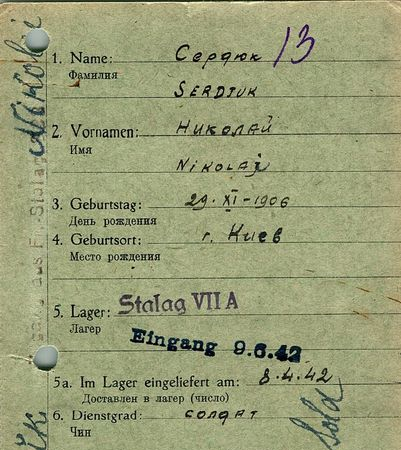 1. Name: Сердюк 13
Фамилия
SERDJUK
2. Vornamen: Николай
Имя
Nikolaj
3. Geburtstag: 29-XI-1906
День рождения
4. Geburtsort: г. Киев
Место рождения
5. Lager: Stalag VII A
Лагер
Eingang 9.6.42
5a. Im Lager eingeliefert am: 8.4.42
Доставлен в лагер (число)
6. Dienstgrad: солдат
Чин
Sold